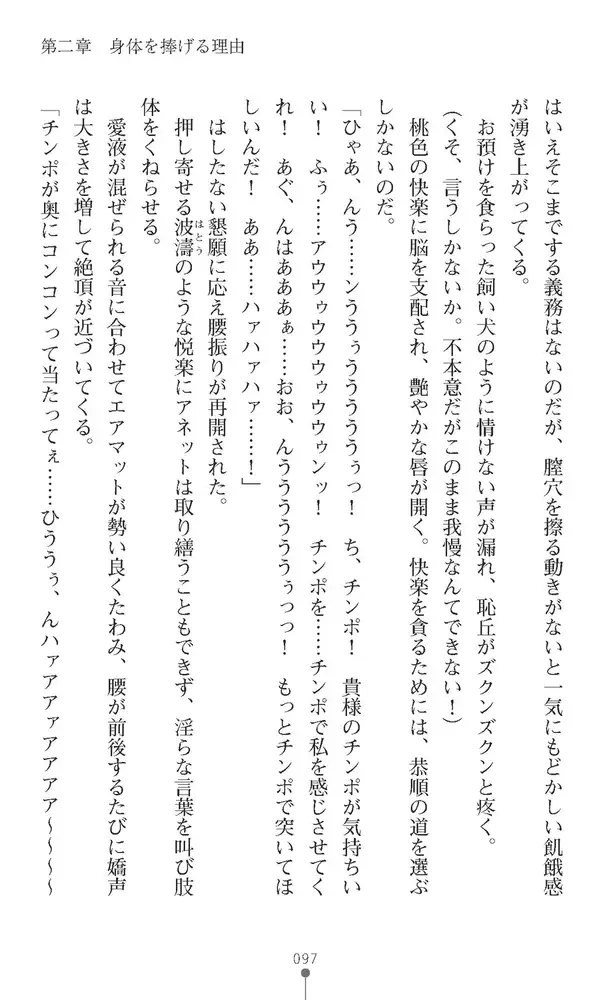 第二章　身体を捧げる理由
はいえそこまでする義務はないのだが、膣穴を擦る動きがないと一気にもどかしい飢餓感
が湧き上がってくる。
　お預けを食らった飼い犬のように情けない声が漏れ、恥丘がズクンズクンと疼く。
（くそ、言うしかないか。不本意だがこのまま我慢なんてできない！）
　桃色の快楽に脳を支配され、艶やかな唇が開く。快楽を貪るためには、恭順の道を選ぶ
しかないのだ。
「ひゃあ、んう……ンううぅうううううぅっ！　ち、チンポ！　貴様のチンポが気持ちい
い！　ふぅ……アウウゥウウウゥウウゥンッ！　チンポを……チンポで私を感じさせてく
れ！　あぐ、んはあああぁ……おお、んうううううぅっっ！　もっとチンポで突いてほ
しいんだ！　ああ……ハァハァハァ……！」
　はしたない懇願に応え腰振りが再開された。
　押し寄せる波濤のような悦楽にアネットは取り繕うこともできず、淫らな言葉を叫び肢
はとう
体をくねらせる。
　愛液が混ぜられる音に合わせてエアマットが勢い良くたわみ、腰が前後するたびに嬌声
は大きさを増して絶頂が近づいてくる。
「チンポが奥にコンコンって当たってぇ……ひううぅ、んハァアアァアアアア〜〜〜〜
097